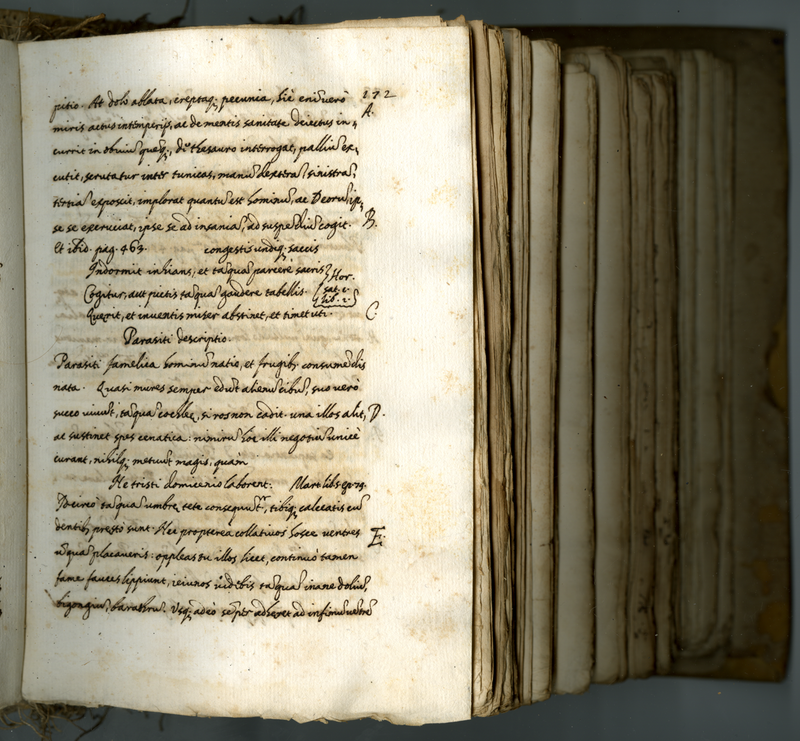 172
pitio. At dolo ablata, ereptaq; pecunia, hic eni᷃verò
A.
miris actus intemperijs, ac de mentis sanitate deiectus in-
currit in obuiu᷃ que᷃q;, de thesauro interrogat, palliu᷃ ex-
cutit, scrutatur inter tunicas, manu᷃ dextera᷃ sinistra᷃,
tertia᷃ exposcit, implorat quantu᷃ est hominu᷃, ac Deoru᷃ ip-
B.
se se excruciat, ipse se ad insania᷃, ad suspe᷃diu᷃ cogit.
Et ibid. pag. 463. congestis undiq; saccis
Indormit inhians, et ta᷃qua᷃ parcere sacris
Hor.
Cogitur, aut pictis ta᷃qua᷃ gaudere tabellis.
sat. 1.
lib. 1.
Querit, et inuentis miser abstinet, et timet uti.
C.
Parasiti descriptio.
Parasiti famelica hominu᷃ natio, et frugib; consume᷃dis
nata. Quasi mures semper edu᷃t alienu᷃ cibu᷃, suo verò
succo viuu᷃t, ta᷃qua᷃ cochleę, si ros non cadit. una illos alit,
D.
ac sustinet spes cenatica: nimiru᷃ hoc illi negotiu᷃ unicè
curant, nihilq; metuu᷃t magis, quàm
Ne tristi domicenio laborent. Mart. lib. 5. ep. 79.
Idcircò ta᷃qua᷃ umbrę, te᷃te consequu᷃tr, tibiq; calceatis
dentib; presto sunt. Nec propterea collativos hosce ventres
E.
u᷃qua᷃ placaveris: oppleas tu illos licet, continuò tamen
fame fauces lippiunt, ieiunos videbis ta᷃qua᷃ inane doliu᷃,
barathru᷃. Usq; adeò se᷃per adheret ad infimu᷃ ve᷃tre᷃